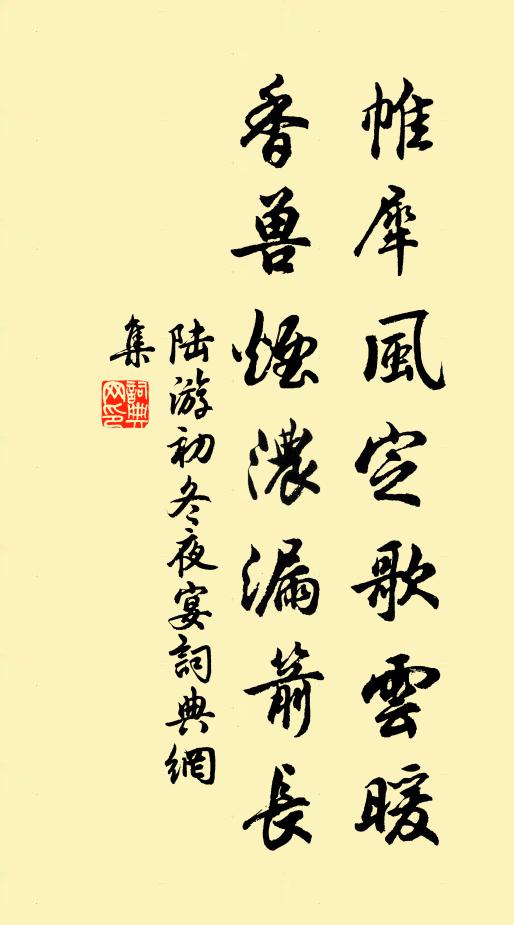 帷犀風定歌雲暖
香兽煙濃漏箭長
陆游初冬夜宴詞典網
集
詞典网印